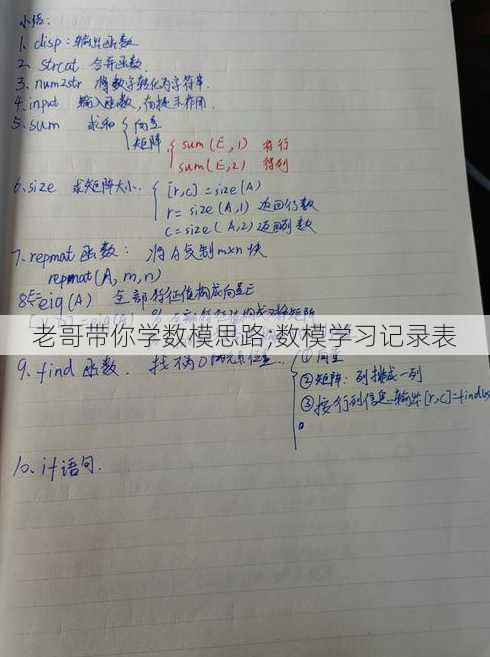 小结:
1、disp:输出函数
2、strcat 合并函数.
3、num2str 将数字转化为字符串.
4、input 输入函数,有提示作用
5、sum 求和 { 向量
矩阵 { sum(E,1) 得行
sum(E,2) 得列
6、size 求矩阵大小. { [r,c]=size(A)
r=size(A,1) 返回行数
c=size(A,2) 返回列数
7、repmat函数: 将A复制m×n块
repmat(A,m,n)
8、E=eig(A) 全部特征值构成向量E
老哥带你学数模思路;数模学习记录表
9、find 函数. 找不为0的元素位置. { ①向量
②矩阵:列排成一列
③按行列信息输出[r,c]=find
10、if语句.